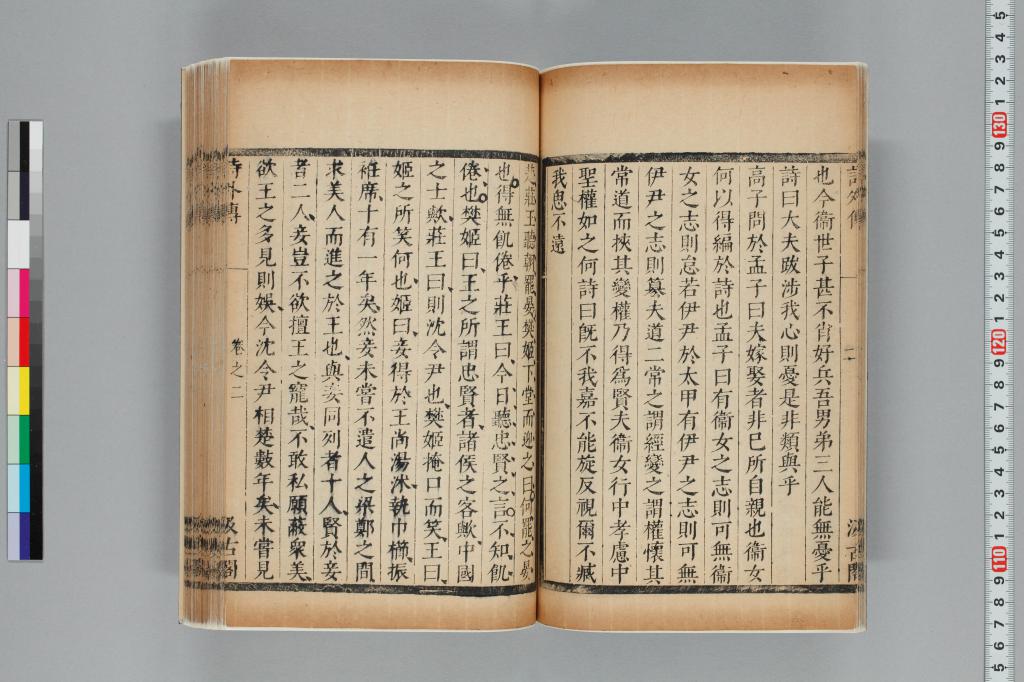 也今衞世子甚不肖好兵吾男弟三人能無憂乎
詩曰大夫跋涉我心則憂是非類與乎
高子問於孟子曰夫嫁娶者非已所自親也衞女
何以得編於詩也孟子曰有衞女之志則可無衞
女之志則怠若伊尹於太甲有伊尹之志則可無
伊尹之志則篡夫道二常之謂經變之謂權懷其
常道而挾其變權乃得爲賢夫衞女行中孝慮中
聖權如之何詩曰旣不我嘉不能旋反視爾不臧
我思不遠
楚莊王聽朝罷晏樊姬下堂而迎之曰何罷之晏
也得無飢倦乎莊王曰今日聽忠賢之言不知飢
倦也樊姬曰王之所謂忠賢者諸侯之客歟中國
之士歟莊王曰則沈令尹也樊姬掩口而笑王曰
姬之所笑何也姬曰妾得於王尚湯沐執巾櫛振
袵席十有一年矣然妾未嘗不遣人之梁鄭之間
求美人而進之於王也與妾同列者十人賢於妾
者二人妾豈不欲擅王之寵哉不敢私願蔽衆美
欲王之多見則娛今沈令尹相楚數年矣未嘗見
詩外傳
卷之二
汲古閣